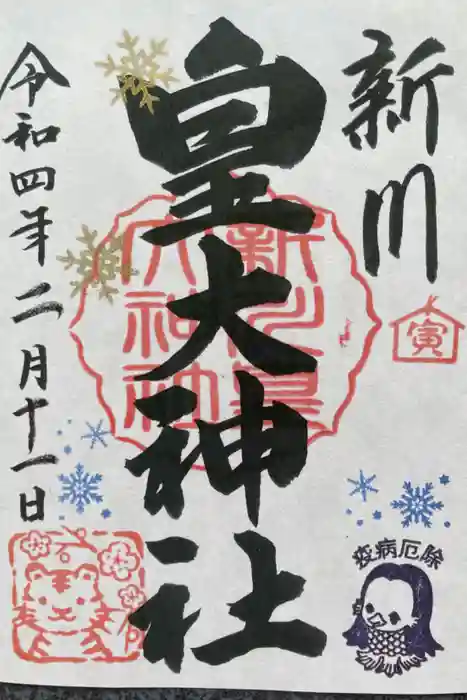 新川
皇大神社
令和四年二月十一日
新川皇
大神社
寅
疫病厄除